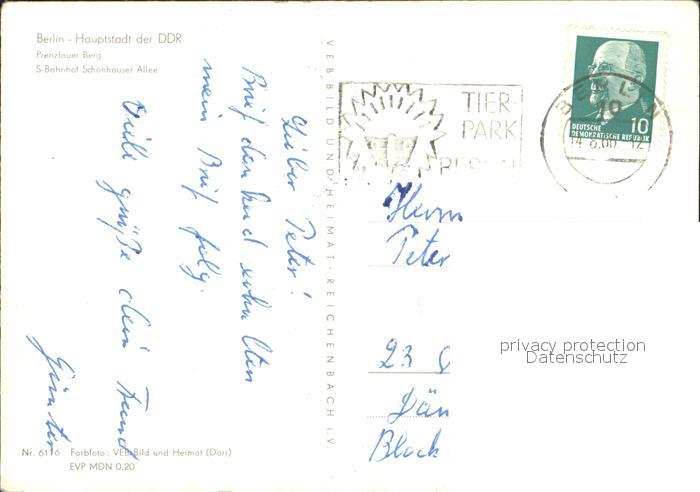 Berlin - Hauptstadt der DDR
Prenzlauer Berg
S-Bahnhof Schönhauser Allee
Lieber Peter!
Brief dankend erhalten
mein Brief folg.
Viele grüße dein Freund
Günter
VEB BILD UND HEIMAT · REICHENBACH I. V.
TIER-
PARK
BERLIN
BERLIN
10
DEUTSCHE
DEMOKRATISCHE REPUBLIK
10
Herrn
Peter
23
Dän
Block
privacy protection
Datenschutz
Nr. 6116 Farbfoto: VEB Bild und Heimat (Darr)
EVP MDN 0.20